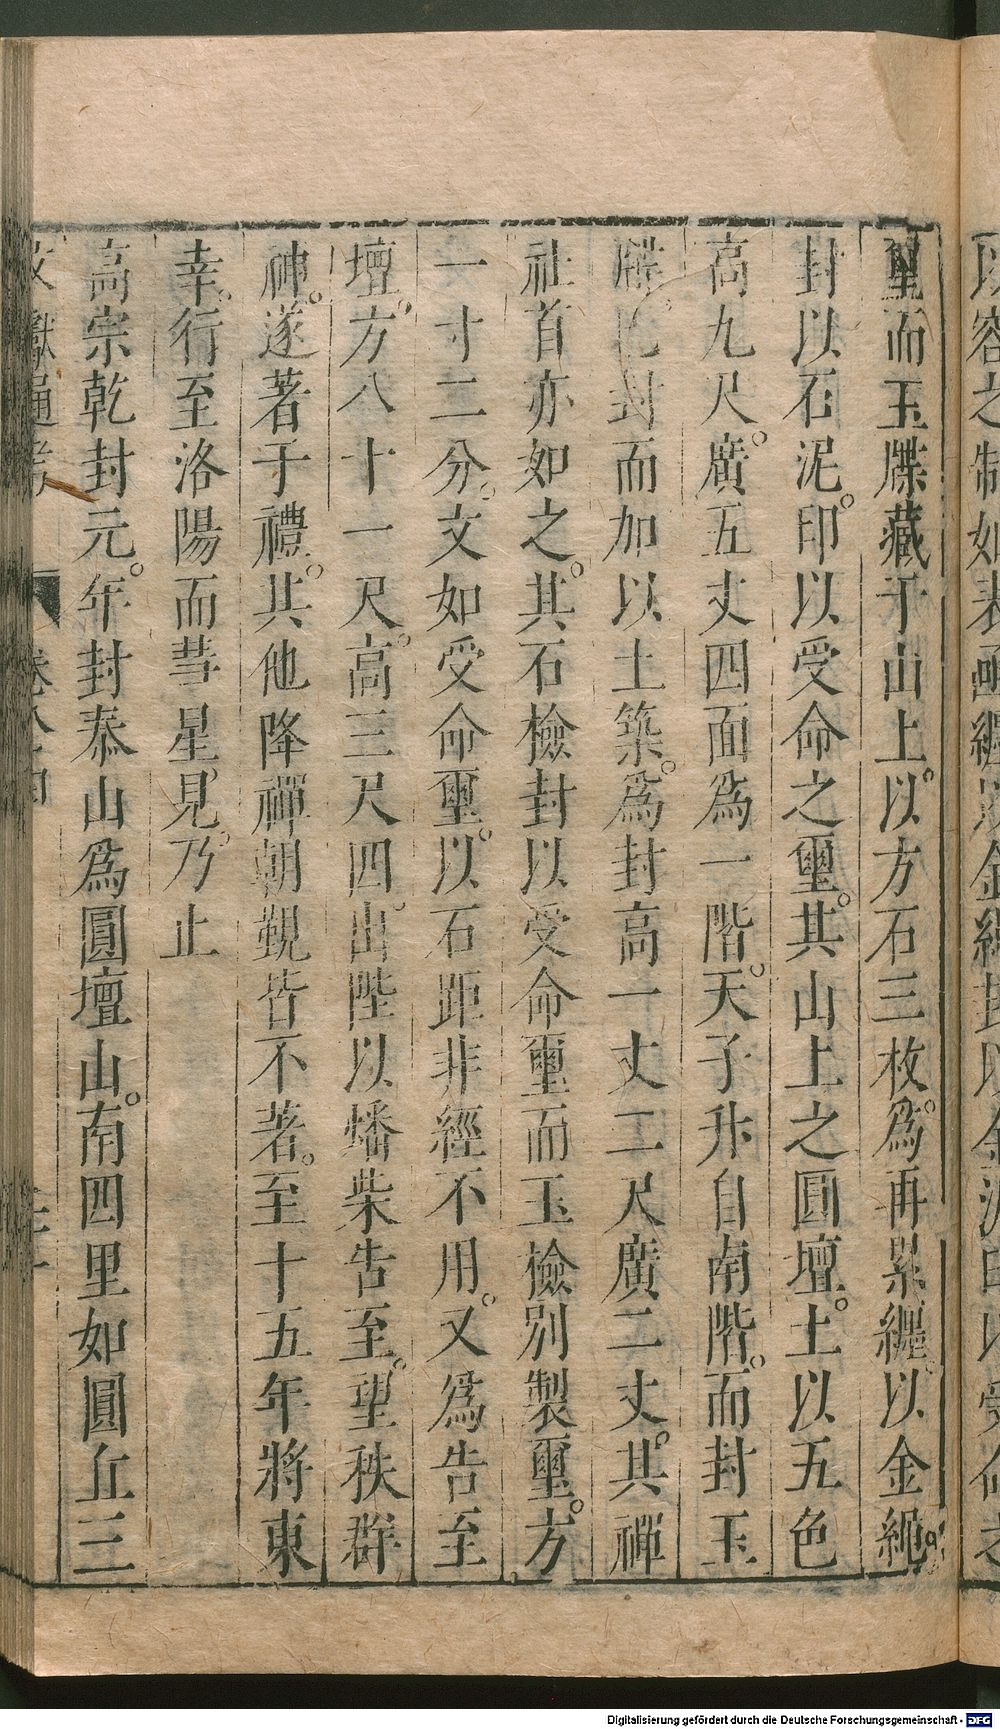 璽而玉牒藏于山上以方石三枚爲再累纏以金繩
封以石泥印以受命之璽其山上之圓壇土以五色
高九尺廣五丈四面爲一階天子升自南階而封玉
牒已封而加以土築爲封高一丈二尺廣二丈其禪
社首亦如之其石檢封以受命璽而玉檢別製璽方
一寸二分文如受命璽以石距非經不用又爲告至
壇方八十一尺高三尺四出陛以燔柴告至望秩群
神遂著于禮其他降禪朝覲皆不著至十五年將東
幸行至洛陽而彗星見乃止
高宗乾封元年封泰山爲圓壇山南四里如圓丘三
Digitalisierung gefördert durch die Deutsche Forschungsgemeinschaft - DFG